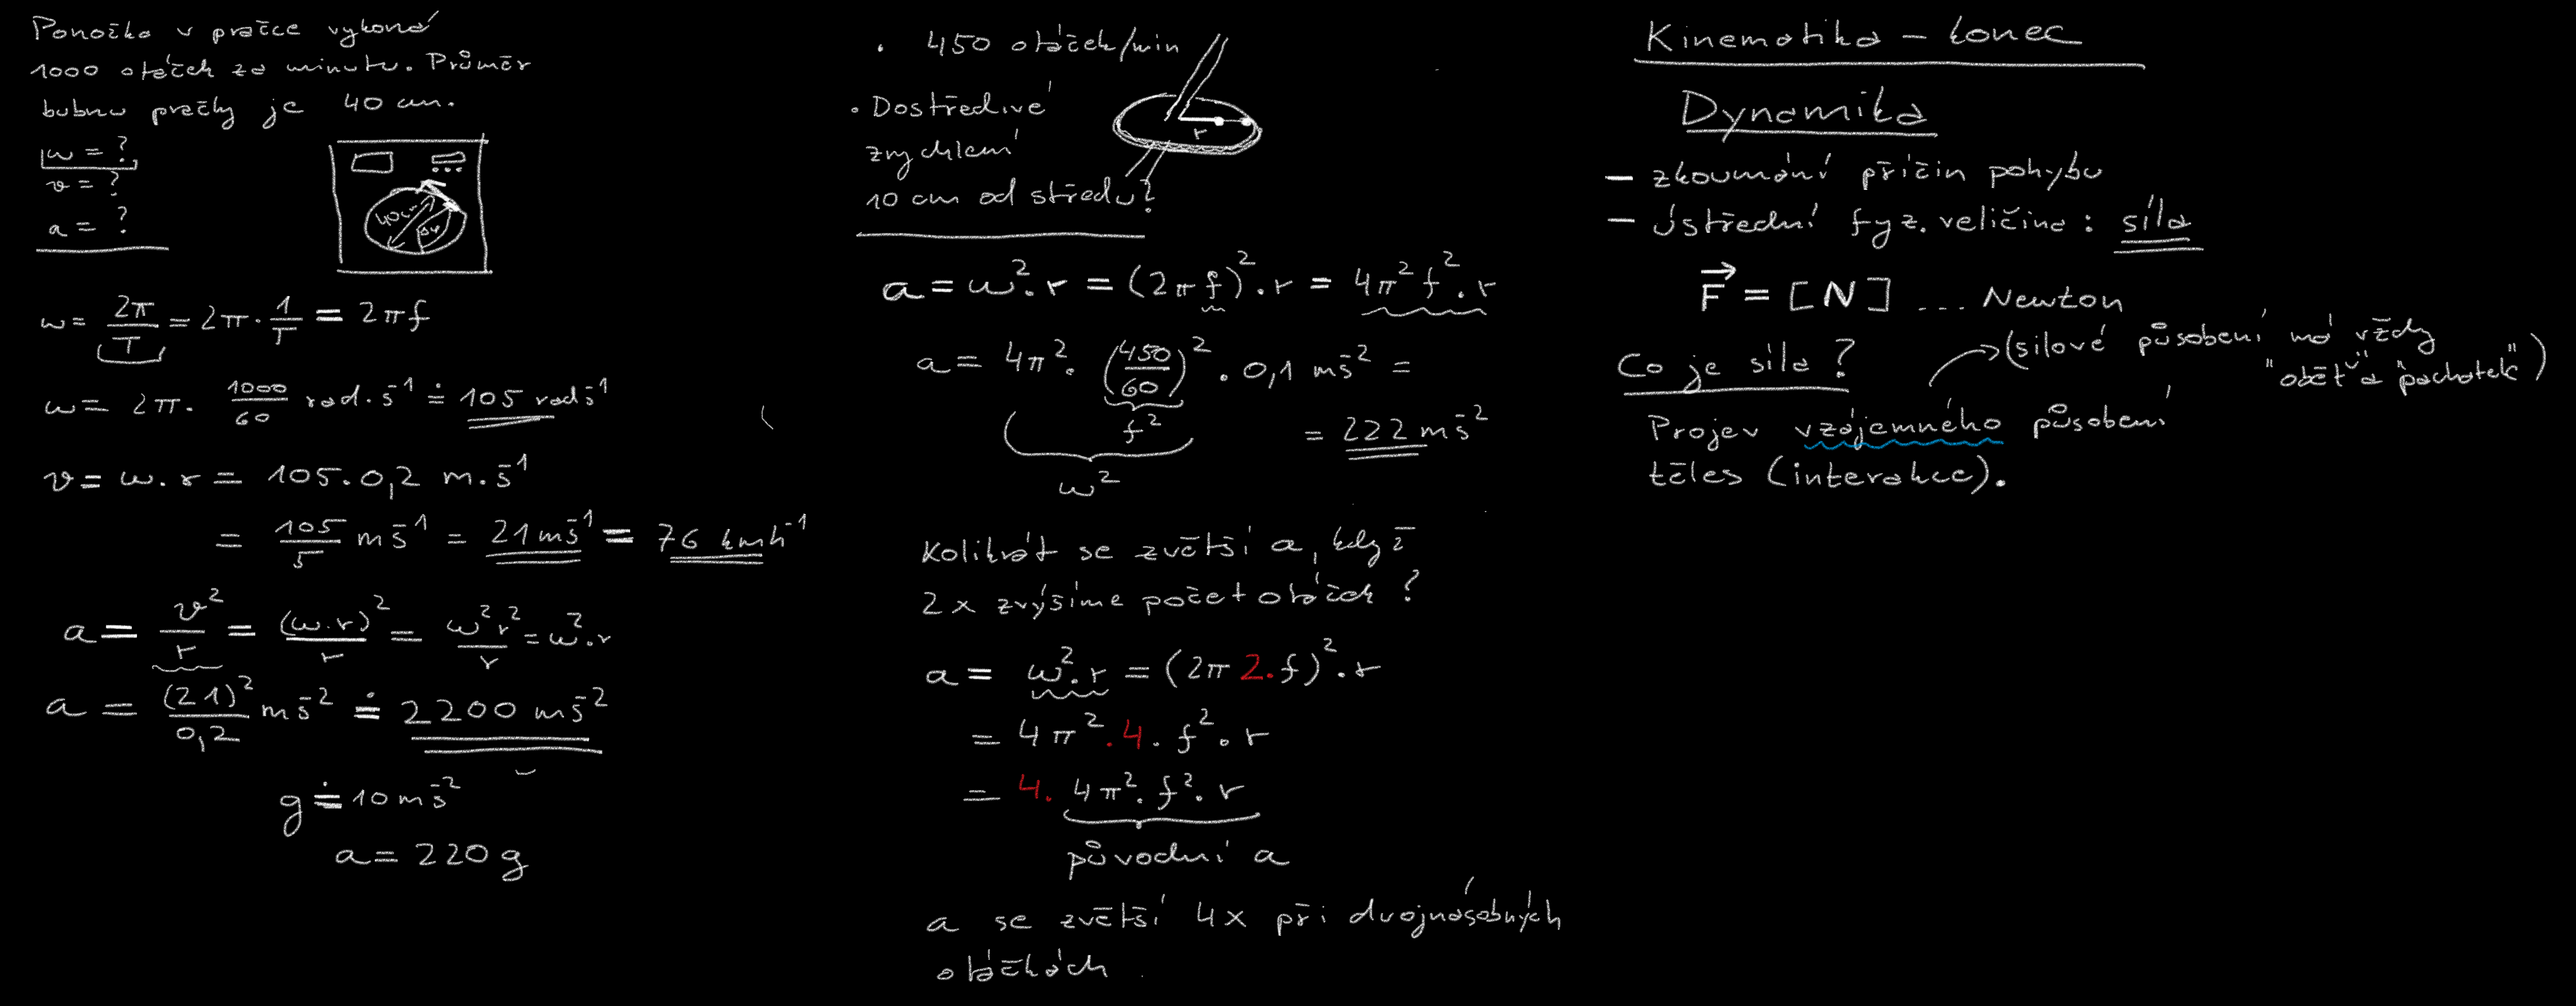 Ponožka v pračce vykoná
1000 otáček za minutu. Průměr
bubnu pračky je 40 cm.
ω = ?
v = ?
a = ?
40cm
ω = 2π/T = 2π · 1/T = 2πf
ω = 2π · 1000/60 rad · s⁻¹ ≐ 105 rad s⁻¹
v = ω · r = 105 · 0,2 m · s⁻¹
= 105/5 m s⁻¹ = 21 m s⁻¹ = 76 km h⁻¹
a = v²/r = (ω · r)²/r = ω² r²/r = ω² · r
a = (21)²/0,2 m s⁻² ≐ 2200 m s⁻²
g ≐ 10 m s⁻²
a = 220 g
· 450 otáček/min
· Dostředivé
zrychlení
10 cm od středu?
r
a = ω² · r = (2πf)² · r = 4π² f² · r
a = 4π² · (450/60)² · 0,1 m s⁻² =
f²
ω²
= 222 m s⁻²
Kolikrát se zvětší a, když
2x zvýšíme počet otáček ?
a = ω² · r = (2π 2 · f)² · r
= 4π² · 4 · f² · r
= 4 · 4π² · f² · r
původní a
a se zvětší 4x při dvojnásobných
otáčkách.
Kinematika – konec
Dynamika
– zkoumání příčin pohybu
– ústřední fyz. veličina : síla
F⃗ = [N] ... Newton
Co je síla ?
(silové působení má vždy
"oběť" a "pachatele")
Projev vzájemného působení
těles (interakce).